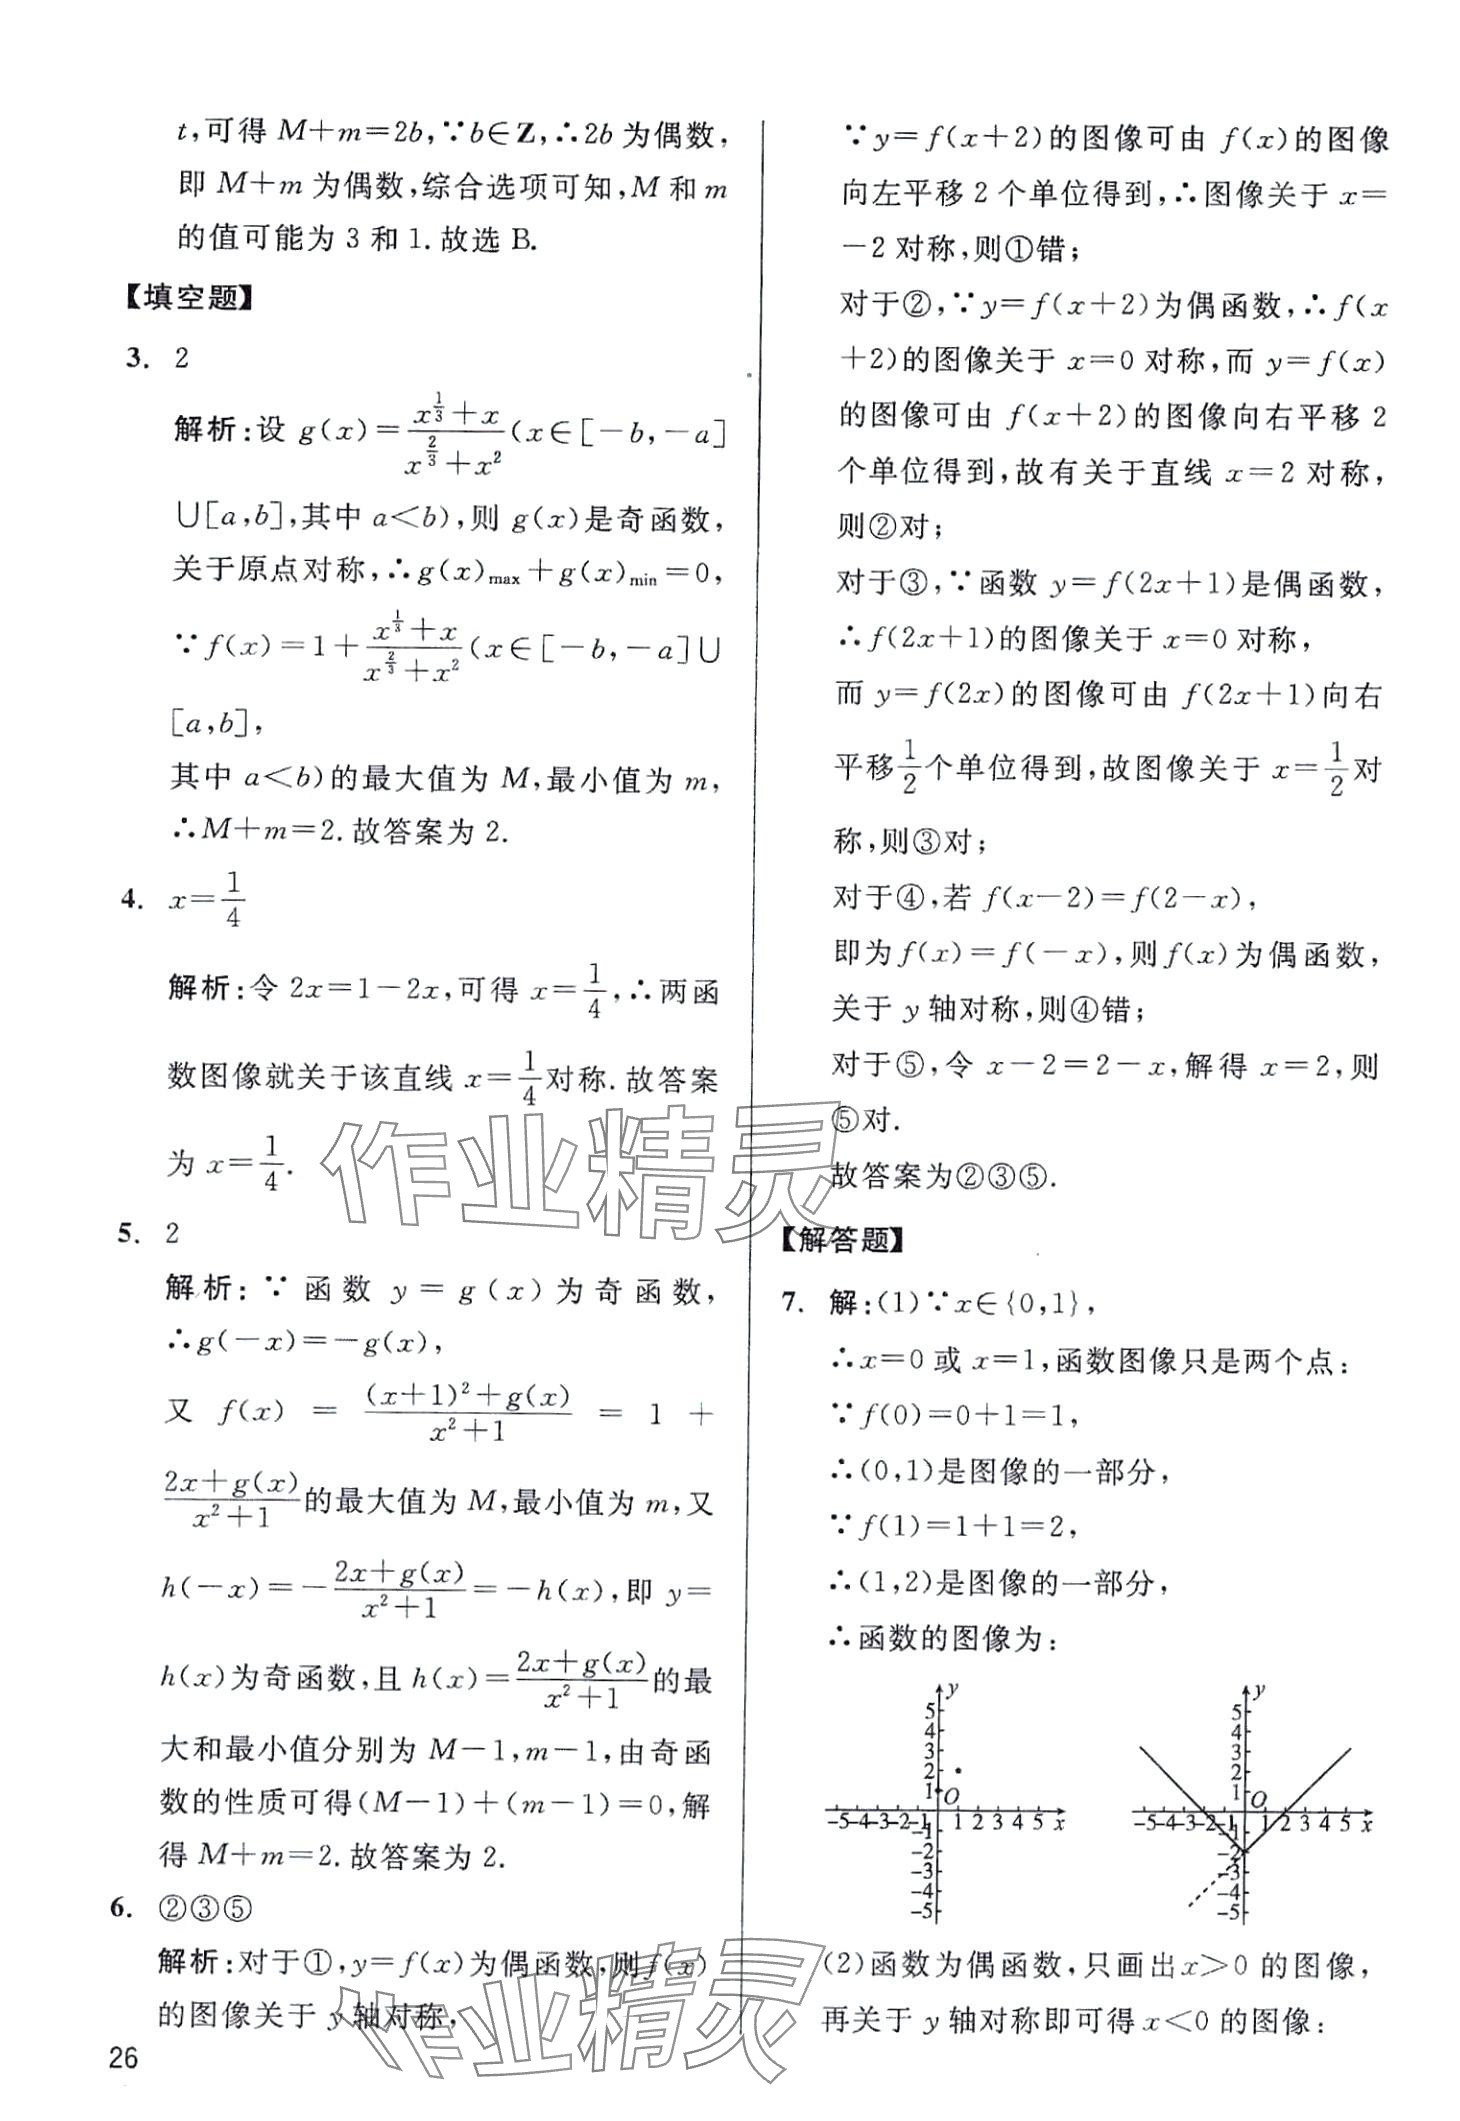 t,可得 M+m=2b,∵b∈Z,∴2b 为偶数,
即 M+m 为偶数,综合选项可知,M 和 m
的值可能为 3 和 1.故选 B.
【填空题】
3. 2
解析:设 g(x)=\frac{x^{\frac{1}{3}}+x}{x^{\frac{2}{3}}+x^2}(x∈[-b,-a]
∪[a,b],其中 a<b),则 g(x)是奇函数,
关于原点对称,∴g(x)_{max}+g(x)_{min}=0,
∵f(x)=1+\frac{x^{\frac{1}{3}}+x}{x^{\frac{2}{3}}+x^2}(x∈[-b,-a]∪
[a,b],
其中 a<b)的最大值为 M,最小值为 m,
∴M+m=2.故答案为 2.
4. x=\frac{1}{4}
解析:令 2x=1-2x,可得 x=\frac{1}{4},∴两函
数图像就关于该直线 x=\frac{1}{4}对称.故答案
为 x=\frac{1}{4}.
5. 2
解析:∵函数 y=g(x)为奇函数,
∴g(-x)=-g(x),
又 f(x)=\frac{(x+1)^2+g(x)}{x^2+1}=1+
\frac{2x+g(x)}{x^2+1}的最大值为 M,最小值为 m,又
h(-x)=-\frac{2x+g(x)}{x^2+1}=-h(x),即 y=
h(x)为奇函数,且 h(x)=\frac{2x+g(x)}{x^2+1}的最
大和最小值分别为 M-1,m-1,由奇函
数的性质可得(M-1)+(m-1)=0,解
得 M+m=2.故答案为 2.
6. ②③⑤
解析:对于①,y=f(x)为偶函数,则f(x)
的图像关于 y 轴对称,
26
∵y=f(x+2)的图像可由 f(x)的图像
向左平移 2 个单位得到,∴图像关于 x=
-2 对称,则①错;
对于②,∵y=f(x+2)为偶函数,∴f(x
+2)的图像关于 x=0 对称,而 y=f(x)
的图像可由 f(x+2)的图像向右平移 2
个单位得到,故有关于直线 x=2 对称,
则②对;
对于③,∵函数 y=f(2x+1)是偶函数,
∴f(2x+1)的图像关于 x=0 对称,
而 y=f(2x)的图像可由 f(2x+1)向右
平移\frac{1}{2}个单位得到,故图像关于 x=\frac{1}{2}对
称,则③对;
对于④,若 f(x-2)=f(2-x),
即为f(x)=f(-x),则f(x)为偶函数,
关于 y 轴对称,则④错;
对于⑤,令 x-2=2-x,解得 x=2,则
⑤对.
故答案为②③⑤.
【解答题】
7. 解:(1)∵x∈{0,1},
∴x=0 或 x=1,函数图像只是两个点:
∵f(0)=0+1=1,
∴(0,1)是图像的一部分,
∵f(1)=1+1=2,
∴(1,2)是图像的一部分,
∴函数的图像为:
y
5
4
3
2
1
O
-5-4-3-2-1 1 2 3 4 5 x
-1
-2
-3
-4
-5
y
5
4
3
2
1
O
-5-4-3-2-1 1 2 3 4 5 x
-1
-2
-3
-4
-5
(2)函数为偶函数,只画出x>0 的图像,
再关于 y 轴对称即可得 x<0 的图像:
作业精灵
作业精灵